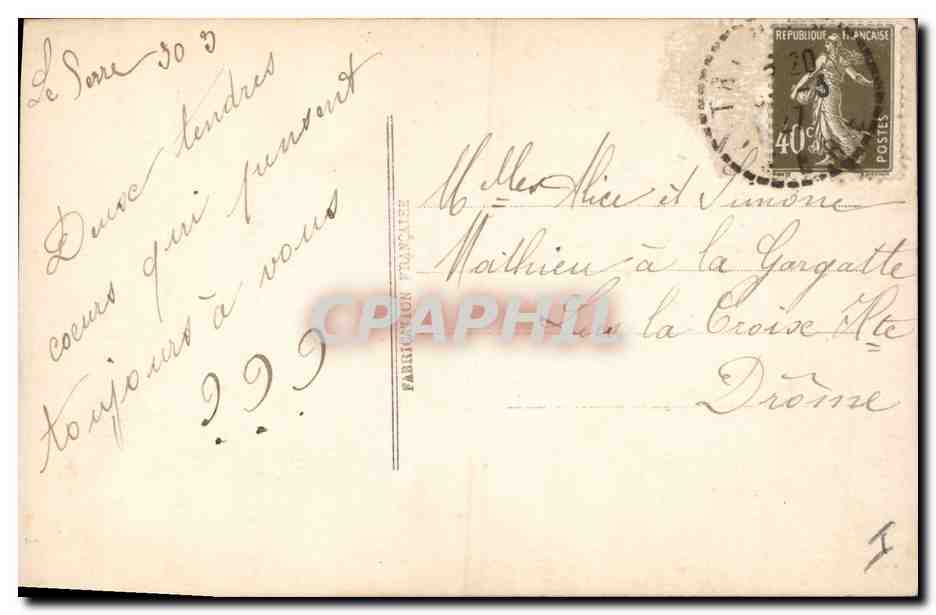 Le Serre 30 3
Deux tendres
coeurs qui pensent
toujours à vous
???
FABRICATION FRANÇAISE
RÉPUBLIQUE FRANÇAISE
40c
POSTES
Melles Alice et Simone
Mathieu à la Gargatte
Lus la Croix Hte
Drôme
CPAPHIL
I